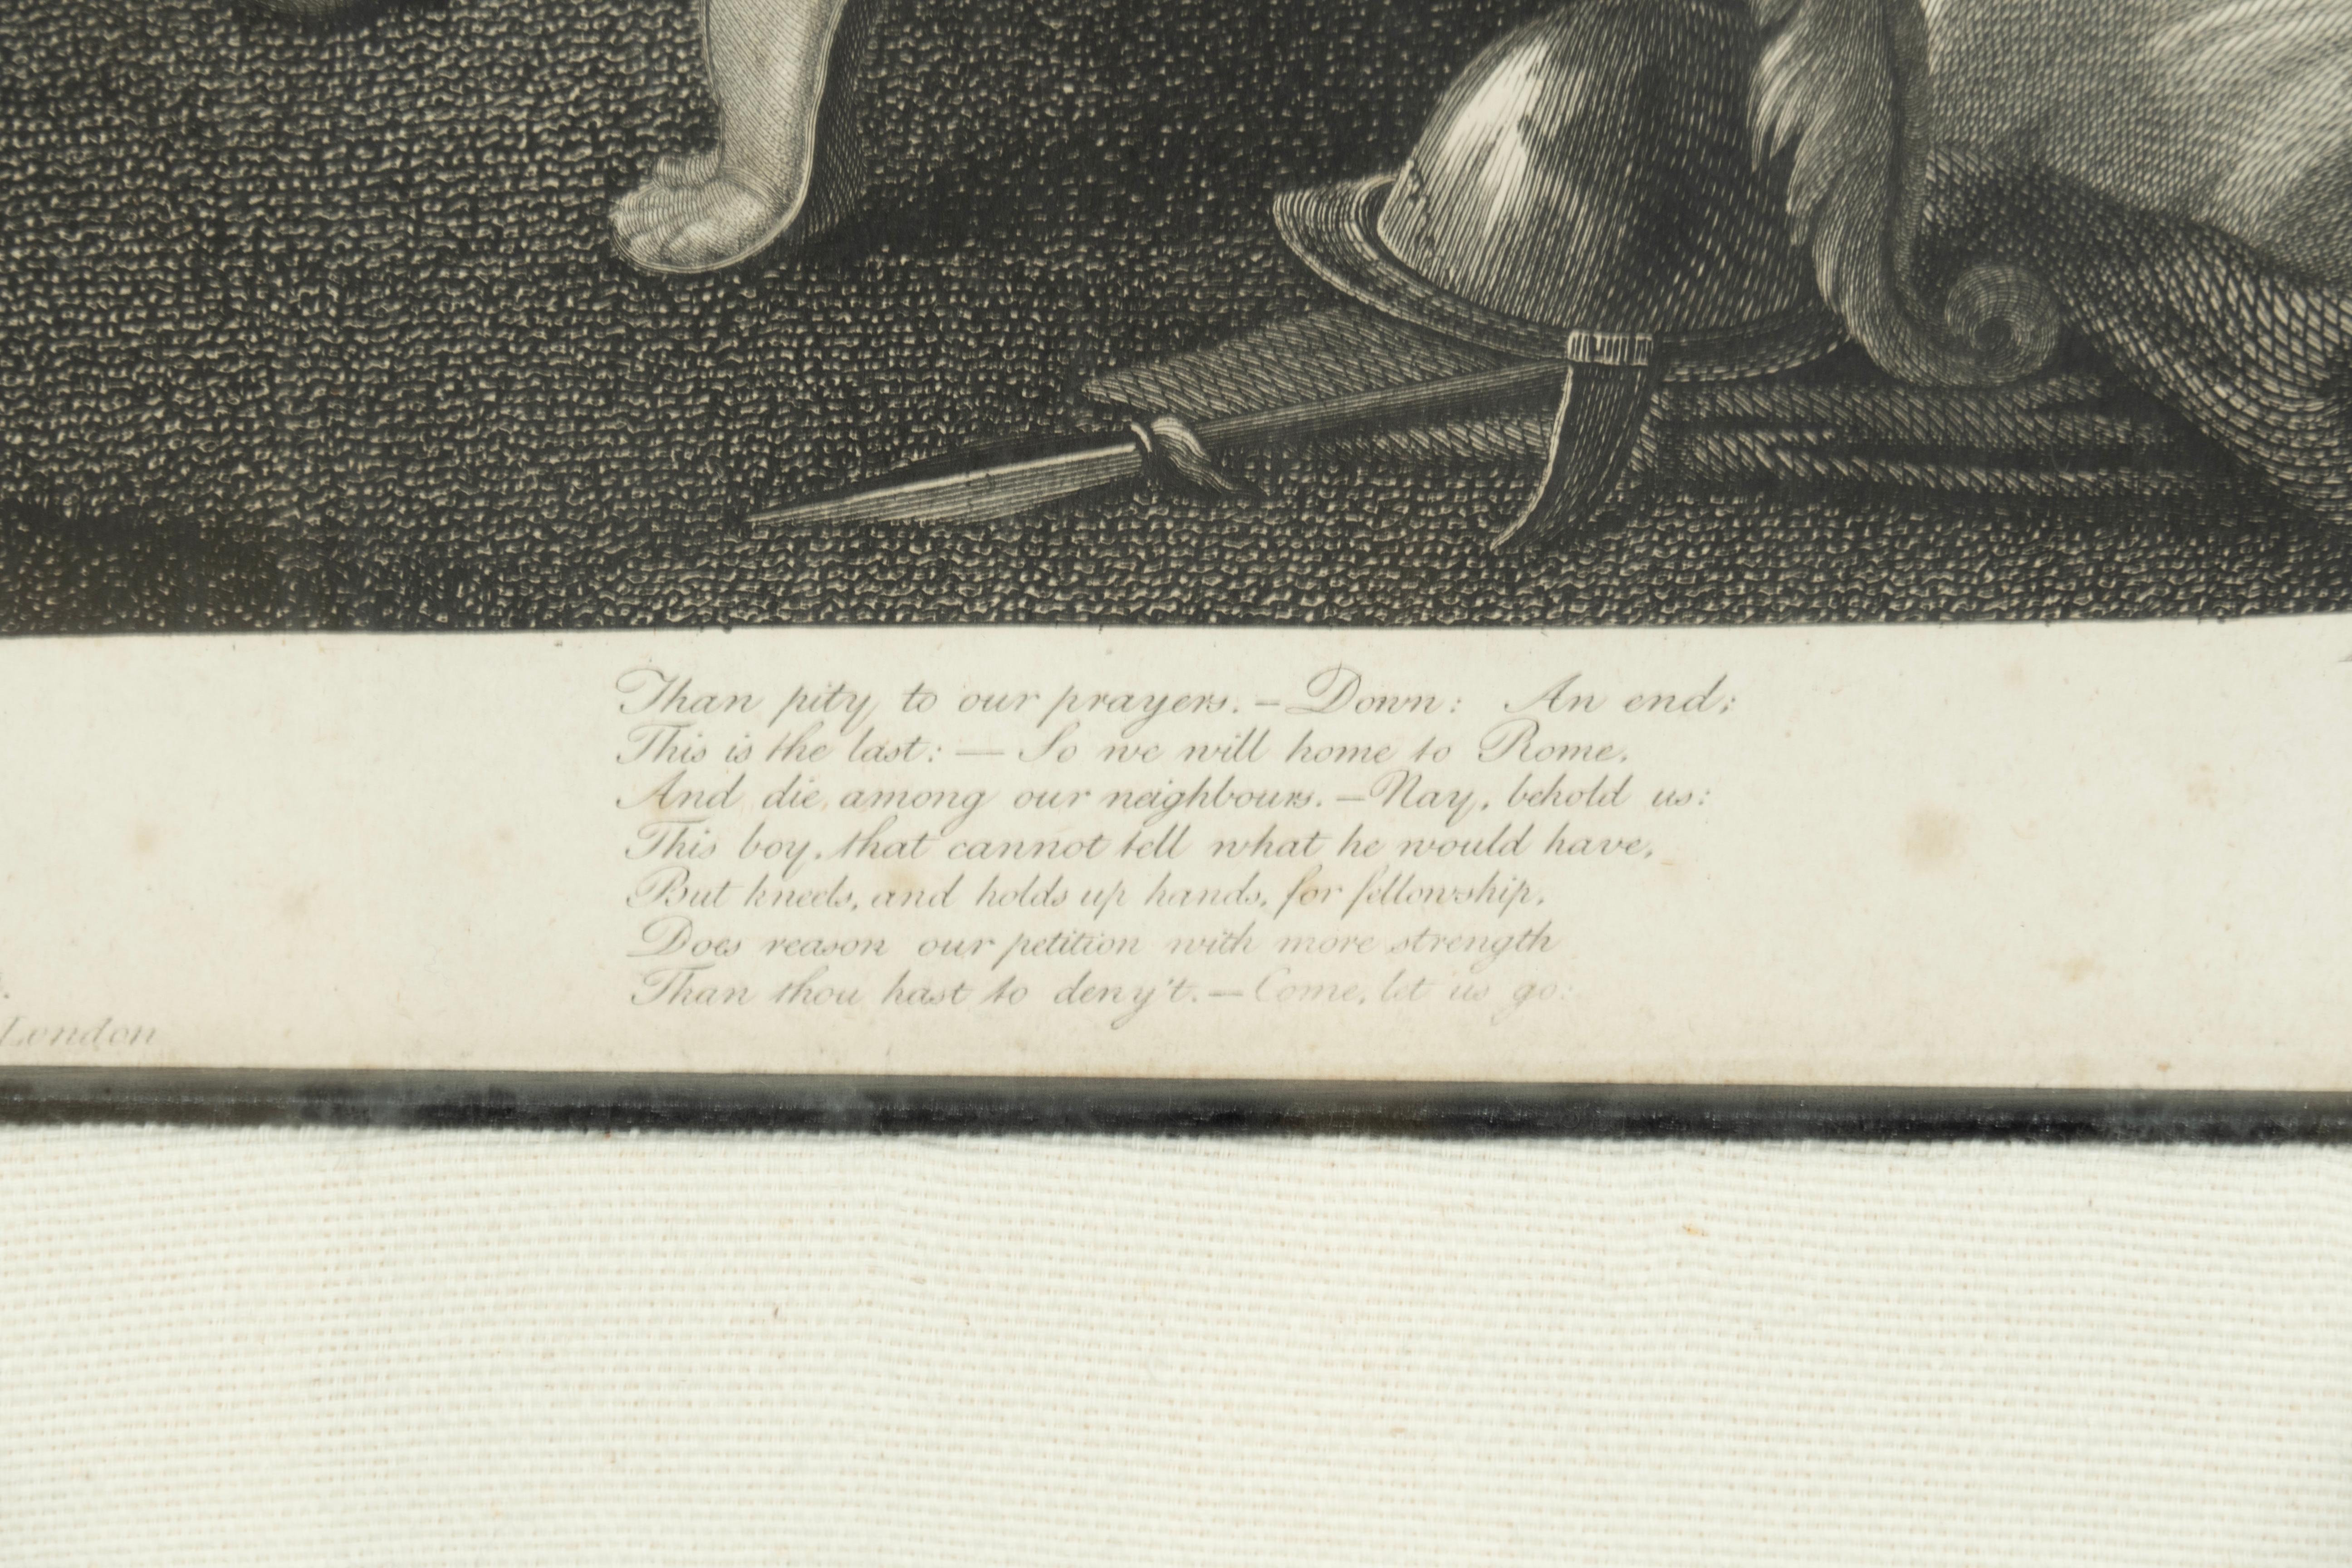 Than pity to our prayers. — Down: An end;
This is the last: — So we will home to Rome,
And die among our neighbours. — Nay, behold us:
This boy, that cannot tell what he would have,
But kneels, and holds up hands, for fellowship,
Does reason our petition with more strength
Than thou hast to deny't. — Come, let us go:
London